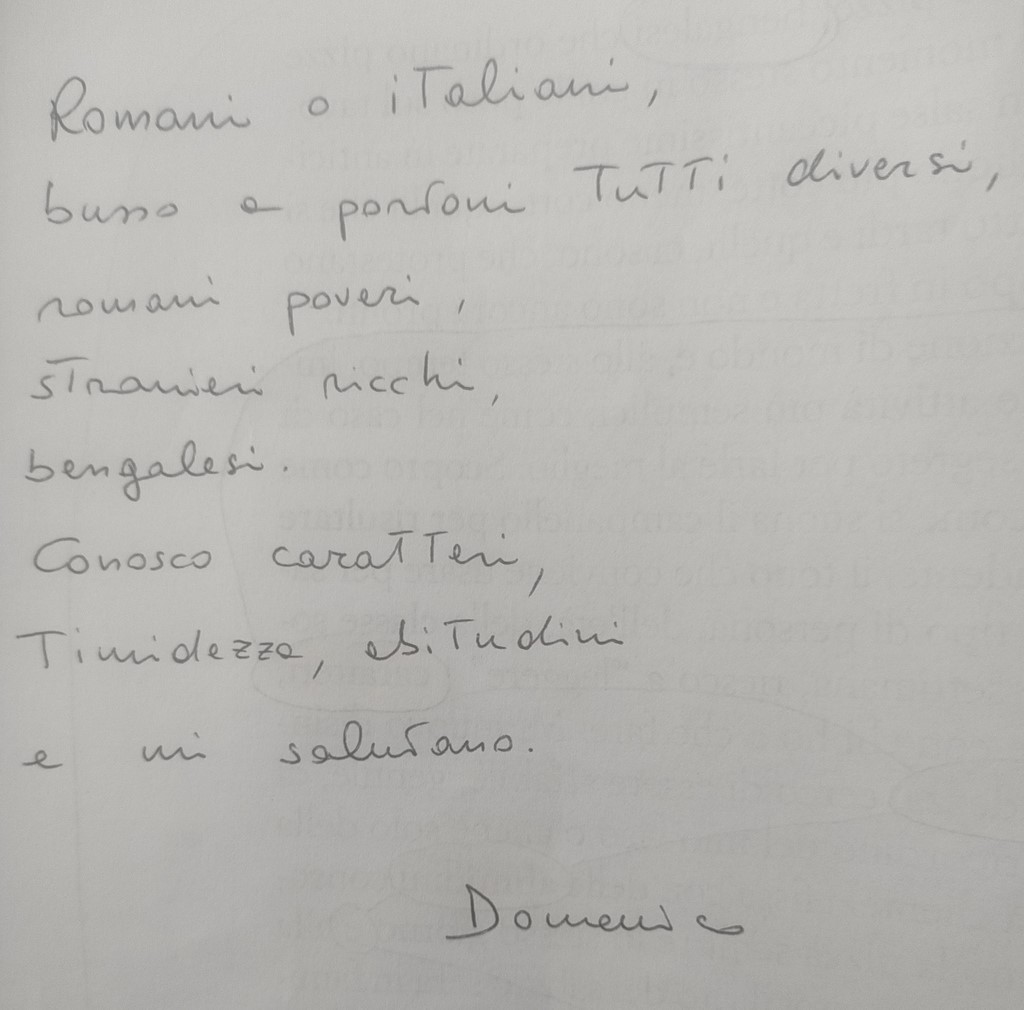 Romani o italiani,
busso a portoni tutti diversi,
romani poveri,
stranieri ricchi,
bengalesi.
Conosco caratteri,
Timidezza, abitudini
e mi salutano.
Domenico